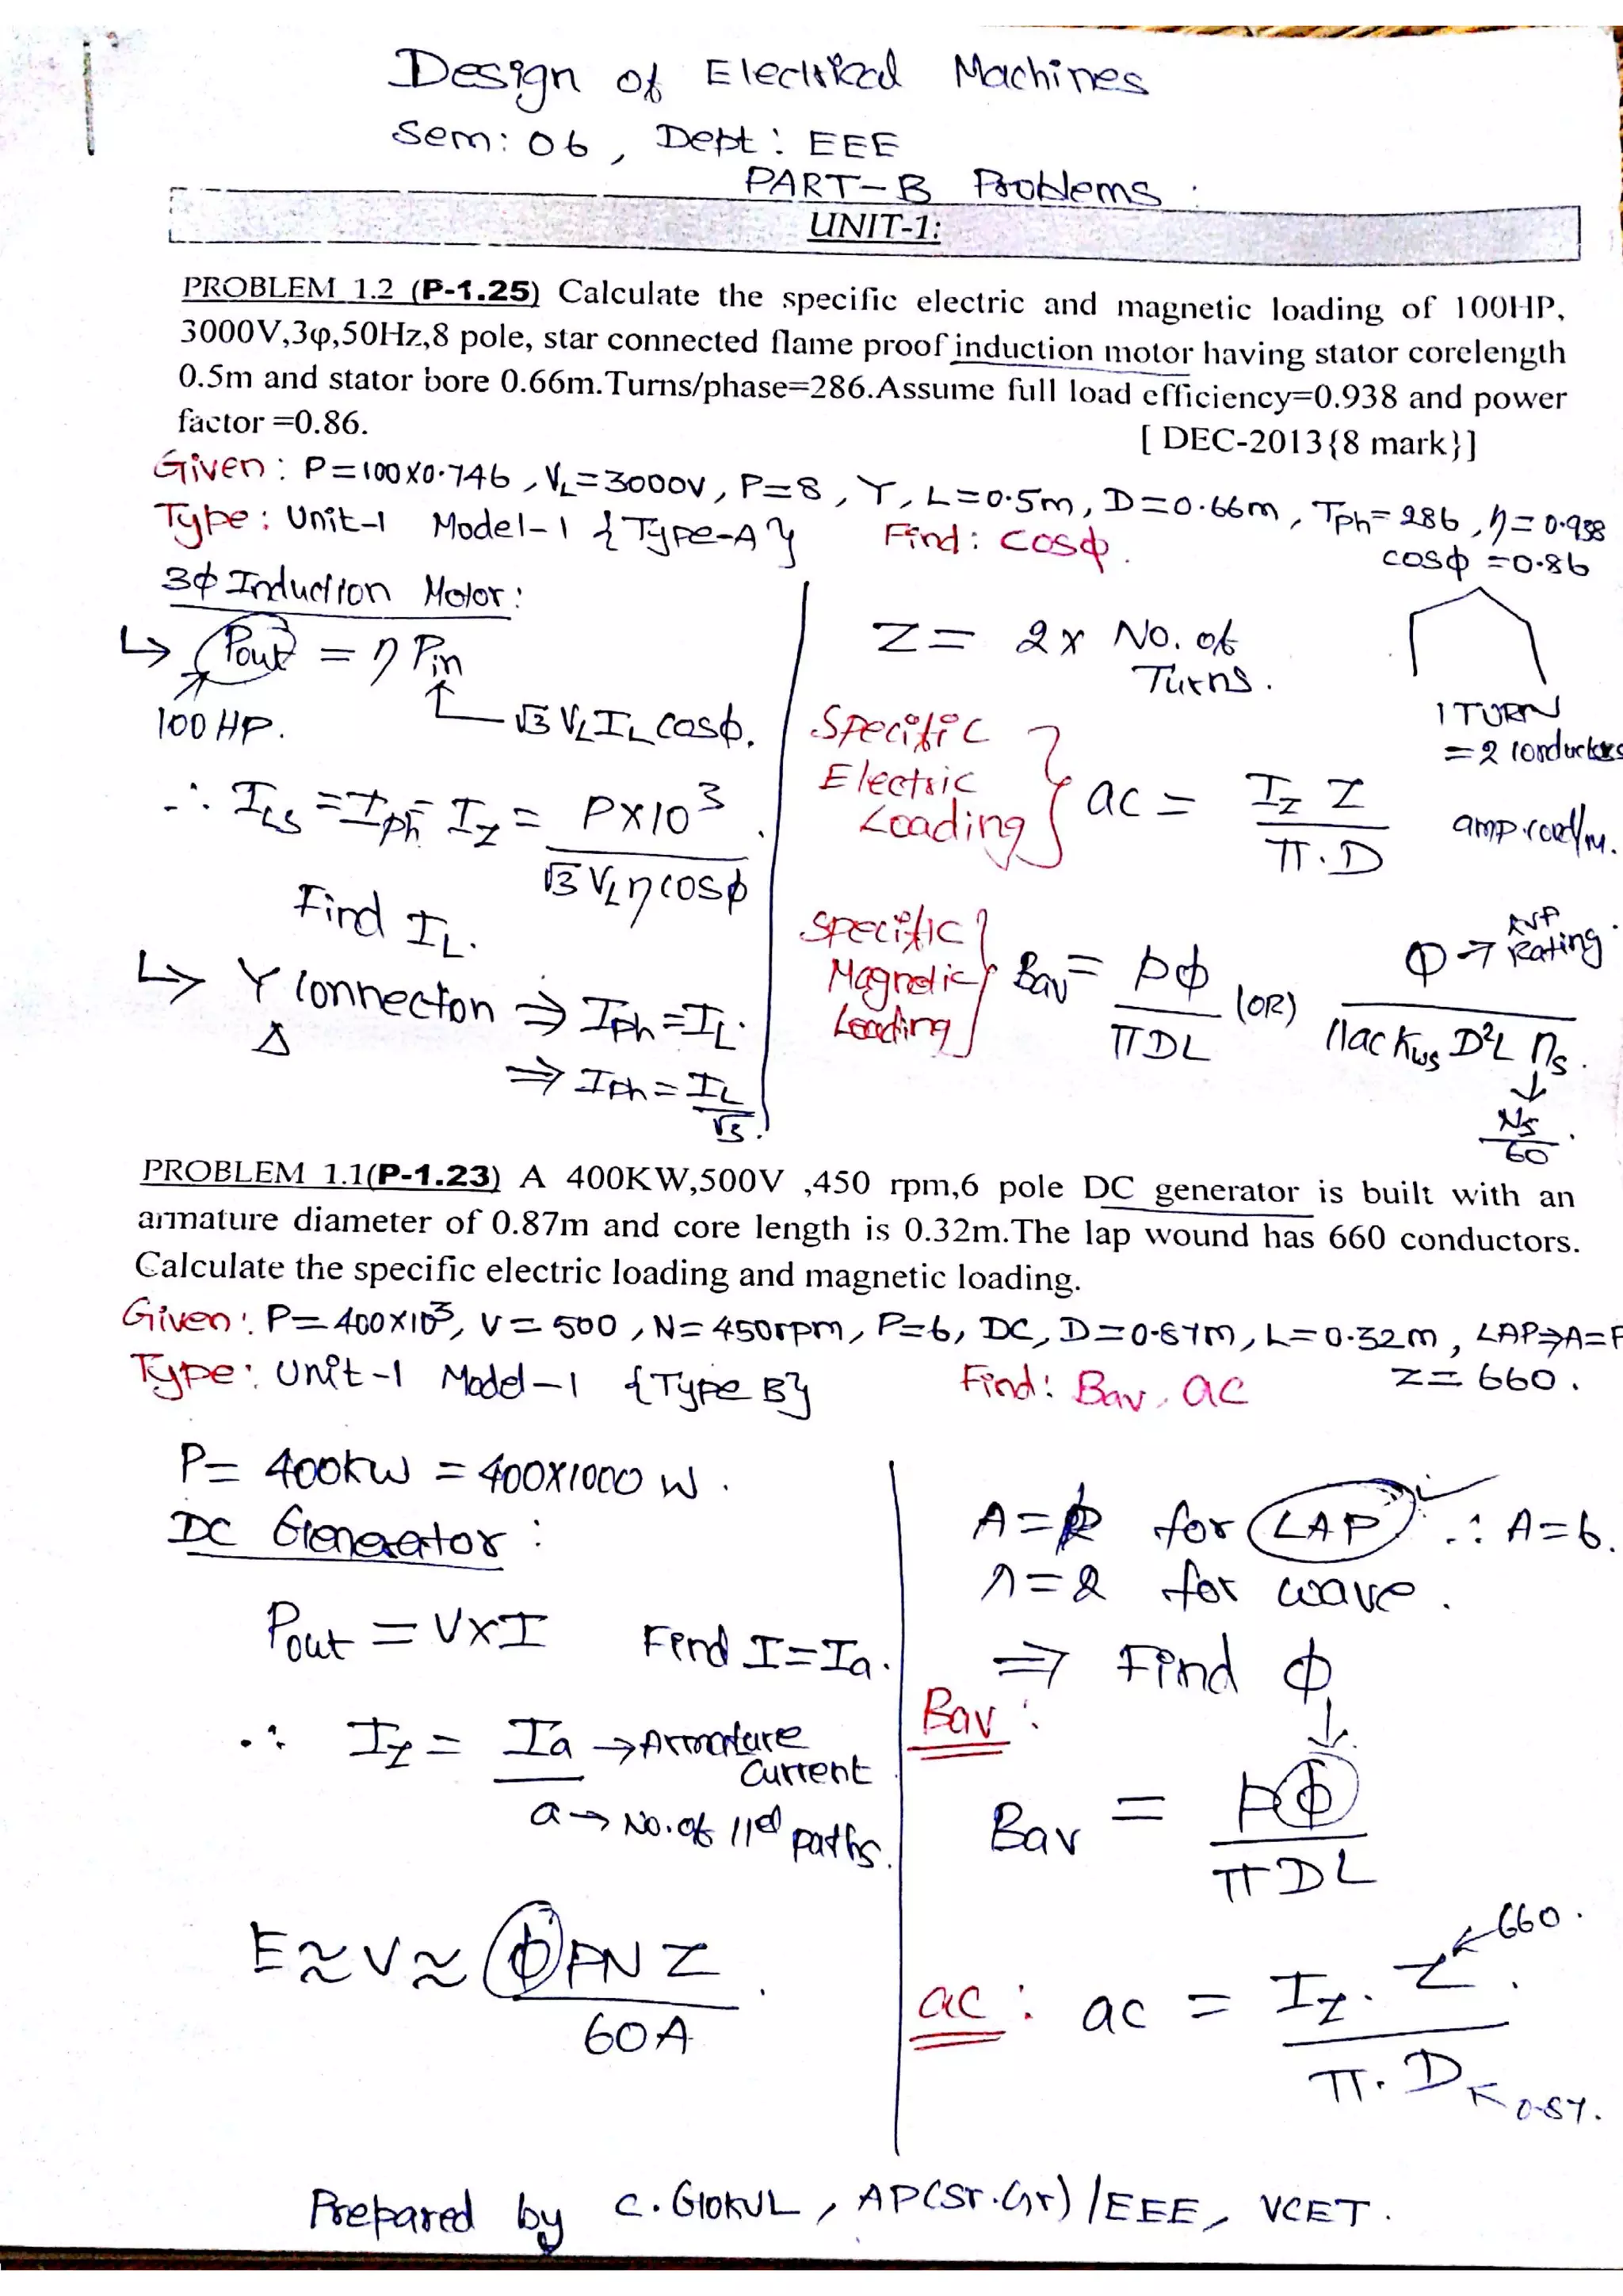 Design of Electrical Machines
Sem: 06, Dept: EEE
PART-B Problems:
UNIT-1:
PROBLEM 1.2 (P-1.25) Calculate the specific electric and magnetic loading of 100HP,
3000V,3φ,50Hz,8 pole, star connected flame proof induction motor having stator corelength
0.5m and stator bore 0.66m.Turns/phase=286.Assume full load efficiency=0.938 and power
factor =0.86.
[ DEC-2013{8 mark}]
Given: P=100X0.746, VL=3000V, P=8, Y, L=0.5m, D=0.66m, Tph=286, η=0.938
cosφ=0.86
Type: Unit-1 Model-1 {Type-A} Find: cosφ.
3φ Induction Motor:
↳ Pout = η Pin
100 HP.
√3 VLIL cosφ.
∴ ILS = Iph = Iz = PX10³ / √3 VL η cosφ.
Find IL.
↳ Y Connecton ⇒ Iph = IL.
Δ ⇒ Iph = IL/√3.
Z = 2 x No. of Turns.
1 TURN
= 2 conductors
Specific Electric Loading } ac = Iz Z / π.D amp.cond/m.
Specific Magnetic Loading } Bav = pφ / πDL (OR) Q → KVA Rating. / 11ac Kws D²L ns.
↓
Ns/60.
PROBLEM 1.1(P-1.23) A 400KW,500V ,450 rpm,6 pole DC generator is built with an
armature diameter of 0.87m and core length is 0.32m.The lap wound has 660 conductors.
Calculate the specific electric loading and magnetic loading.
Given: P=400X10³, V=500, N=450rpm, P=6, DC, D=0.87m, L=0.32m, LAP⇒A=P
Z=660.
Type: Unit-1 Model-1 {Type B} Find: Bav, ac
P= 400kW = 400X1000 W.
DC Generator:
Pout = VxI Find I=Ia.
∴ Iz = Ia → Armature Current
a → No. of 11el paths.
E ≈ V ≈ φPNZ / 60A.
A=P for LAP ∴ A=6.
A=2 for wave.
⇒ Find φ
Bav:
Bav = pφ / πDL
ac: ac = Iz. Z ← 660.
π. D ← 0.87.
Prepared by C. GOKUL, AP(Sr.Gr) /EEE, VCET.